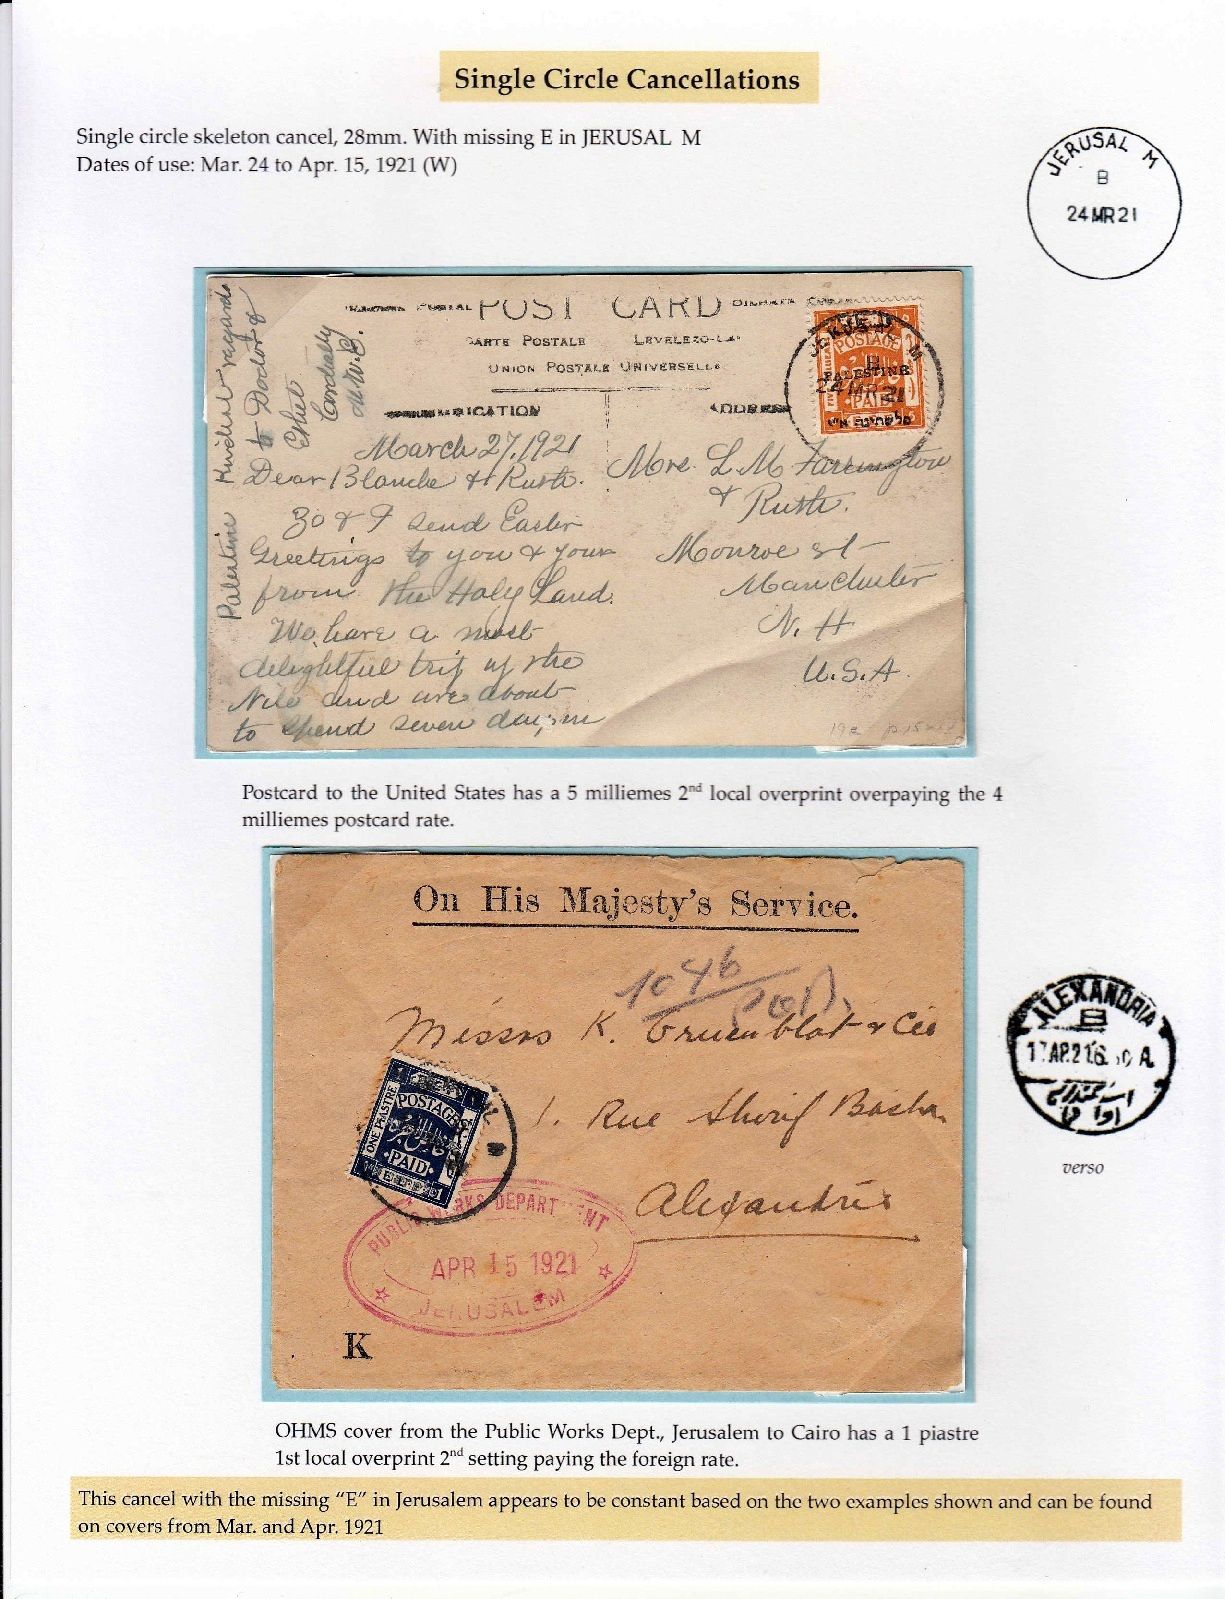 Single Circle Cancellations
Single circle skeleton cancel, 28mm. With missing E in JERUSAL  M
Dates of use: Mar. 24 to Apr. 15, 1921 (W)
JERUSAL  M
B
24MR21
POST CARD
CARTE POSTALE
UNION POSTALE UNIVERSELLE
POSTAGE
PALESTINE
PAID
B
24 MR 21
Palestine Kindest regards
to Doctor &
Ethel
Cordially
M.W.B.
March 27, 1921
Dear Blanche & Ruth.
& I send Easter
Greetings to you & your
from the Holy Land.
We have a most
delightful trip up the
Nile and are about
to spend seven days in
Mrs. L M Farrington
& Ruth.
Monroe St
Manchester
N. H
U.S.A.
Postcard to the United States has a 5 milliemes 2nd local overprint overpaying the 4
milliemes postcard rate.
On His Majesty's Service.
1046
Messrs K. Gruenblat & Cie
1. Rue Sherif Basha
Alexandrie
ONE PIASTRE
POSTAGE
PAID
PUBLIC WORKS DEPART  ENT
APR 15 1921
JERUSALEM
K
ALEXANDRIA
B
verso
OHMS cover from the Public Works Dept., Jerusalem to Cairo has a 1 piastre
1st local overprint 2nd setting paying the foreign rate.
This cancel with the missing "E" in Jerusalem appears to be constant based on the two examples shown and can be found
on covers from Mar. and Apr. 1921